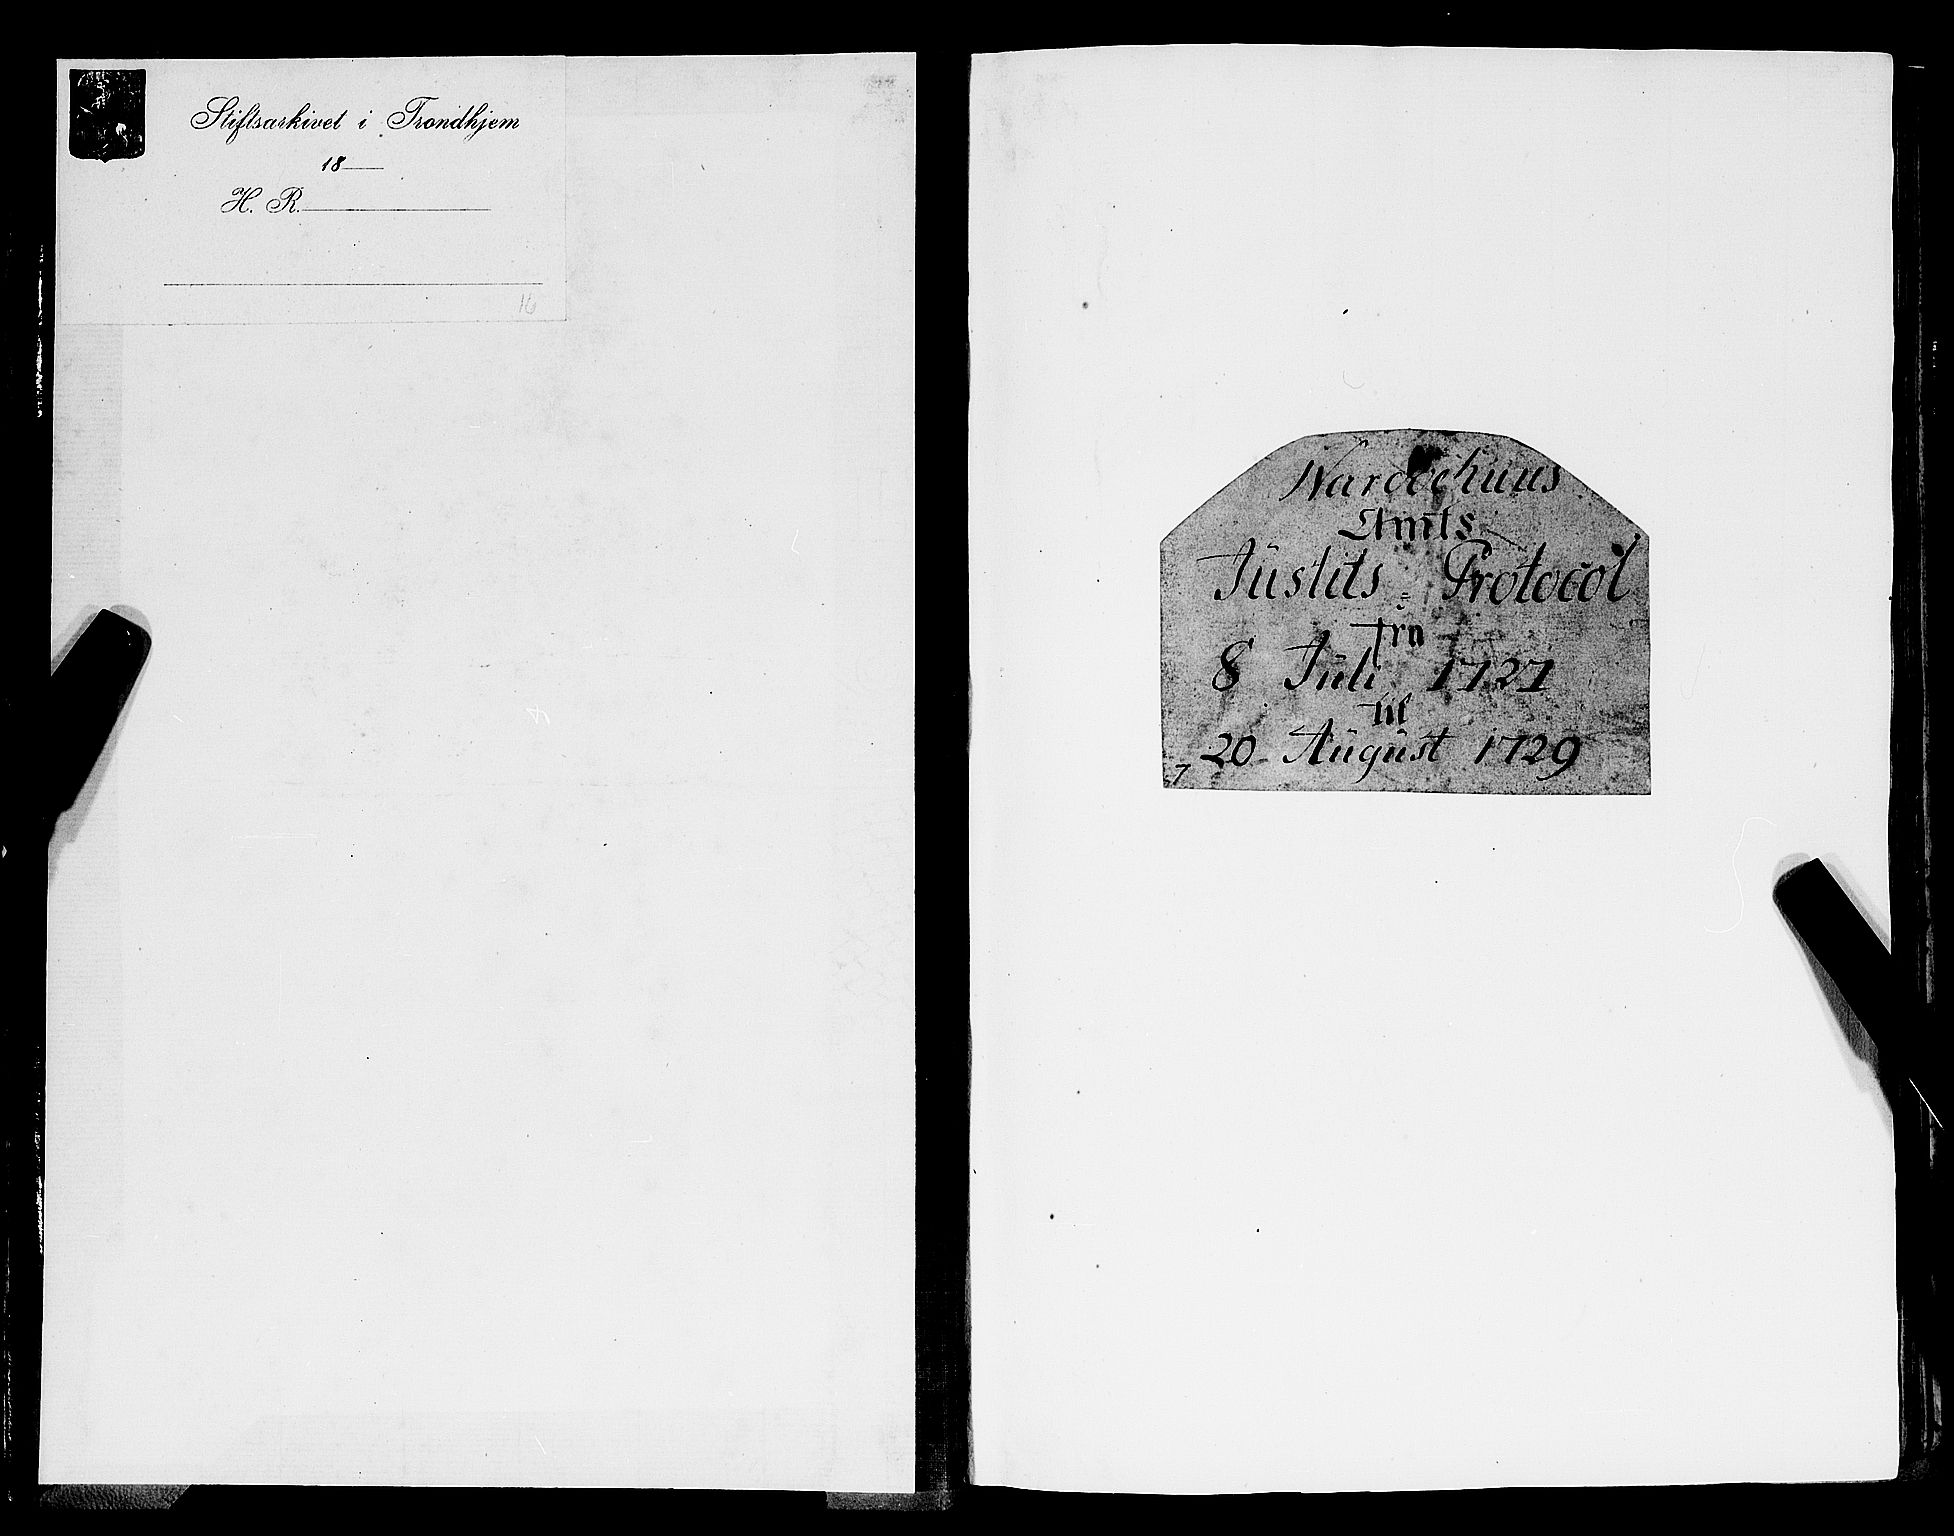 Stiftsarkivet i Trondhjem
18
H. R.
16
Wardøehuus
Amts
Justits = Protocol
fra
8 Juli 1727
til
20 August 1729
7